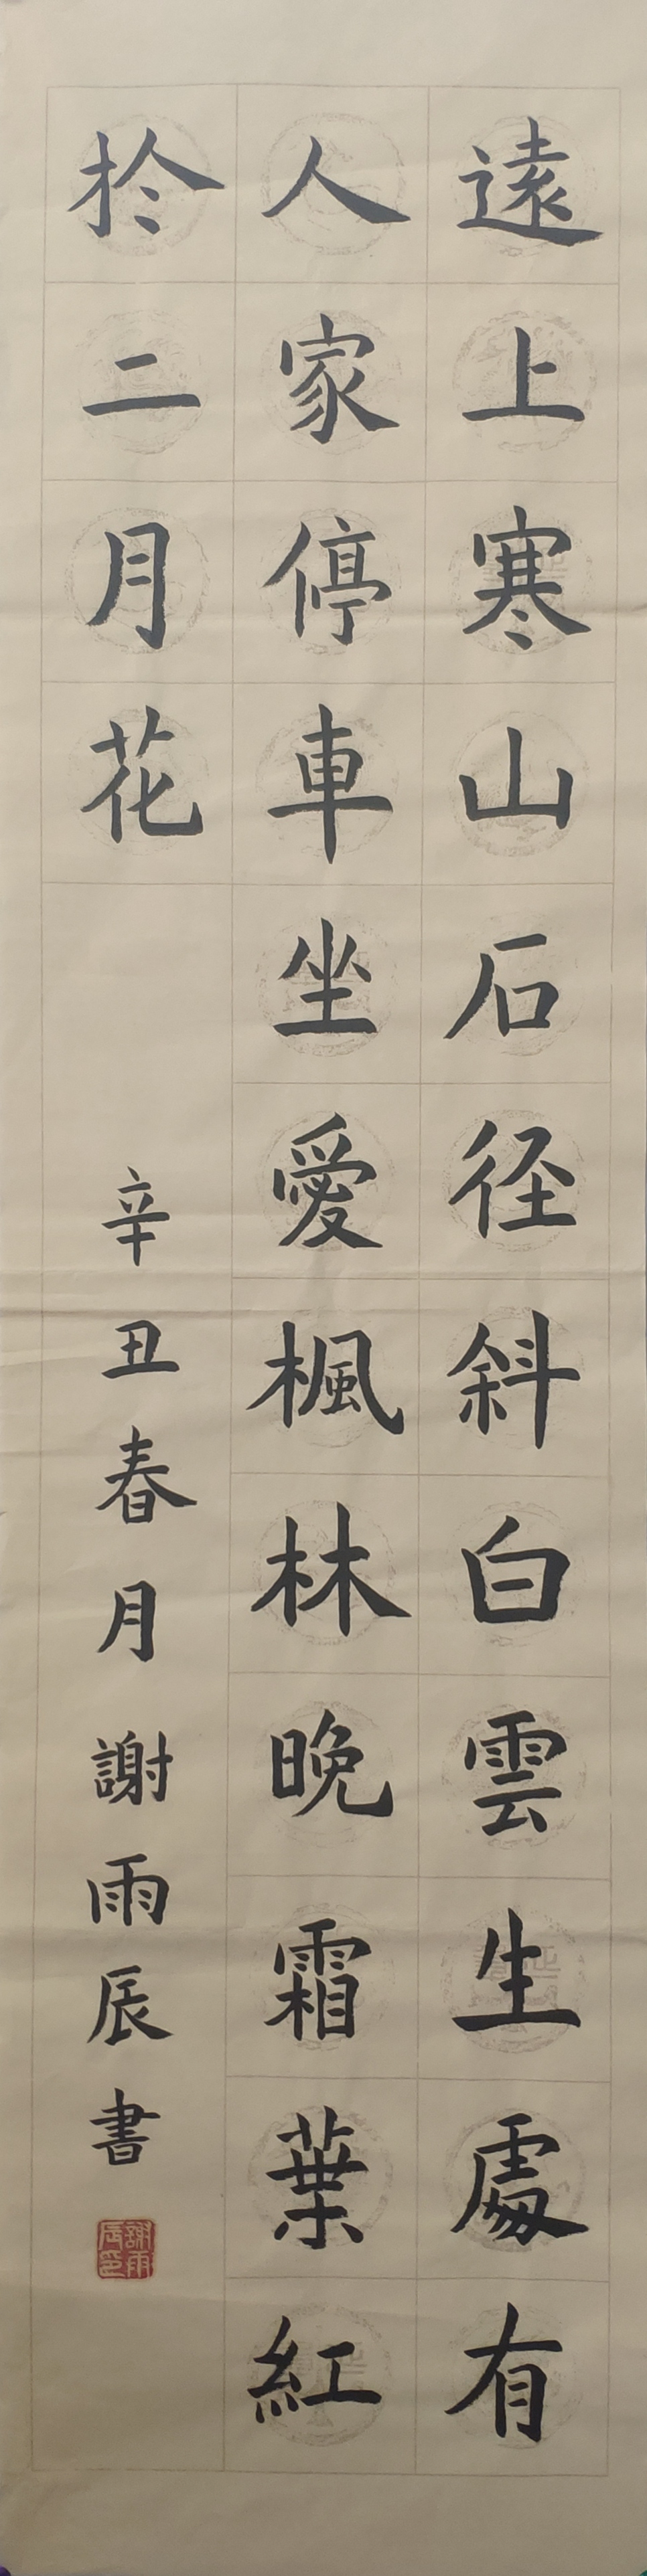 遠上寒山石径斜白雲生處有
人家停車坐愛楓林晚霜葉紅
於二月花
辛丑春月謝雨辰書
謝雨辰印